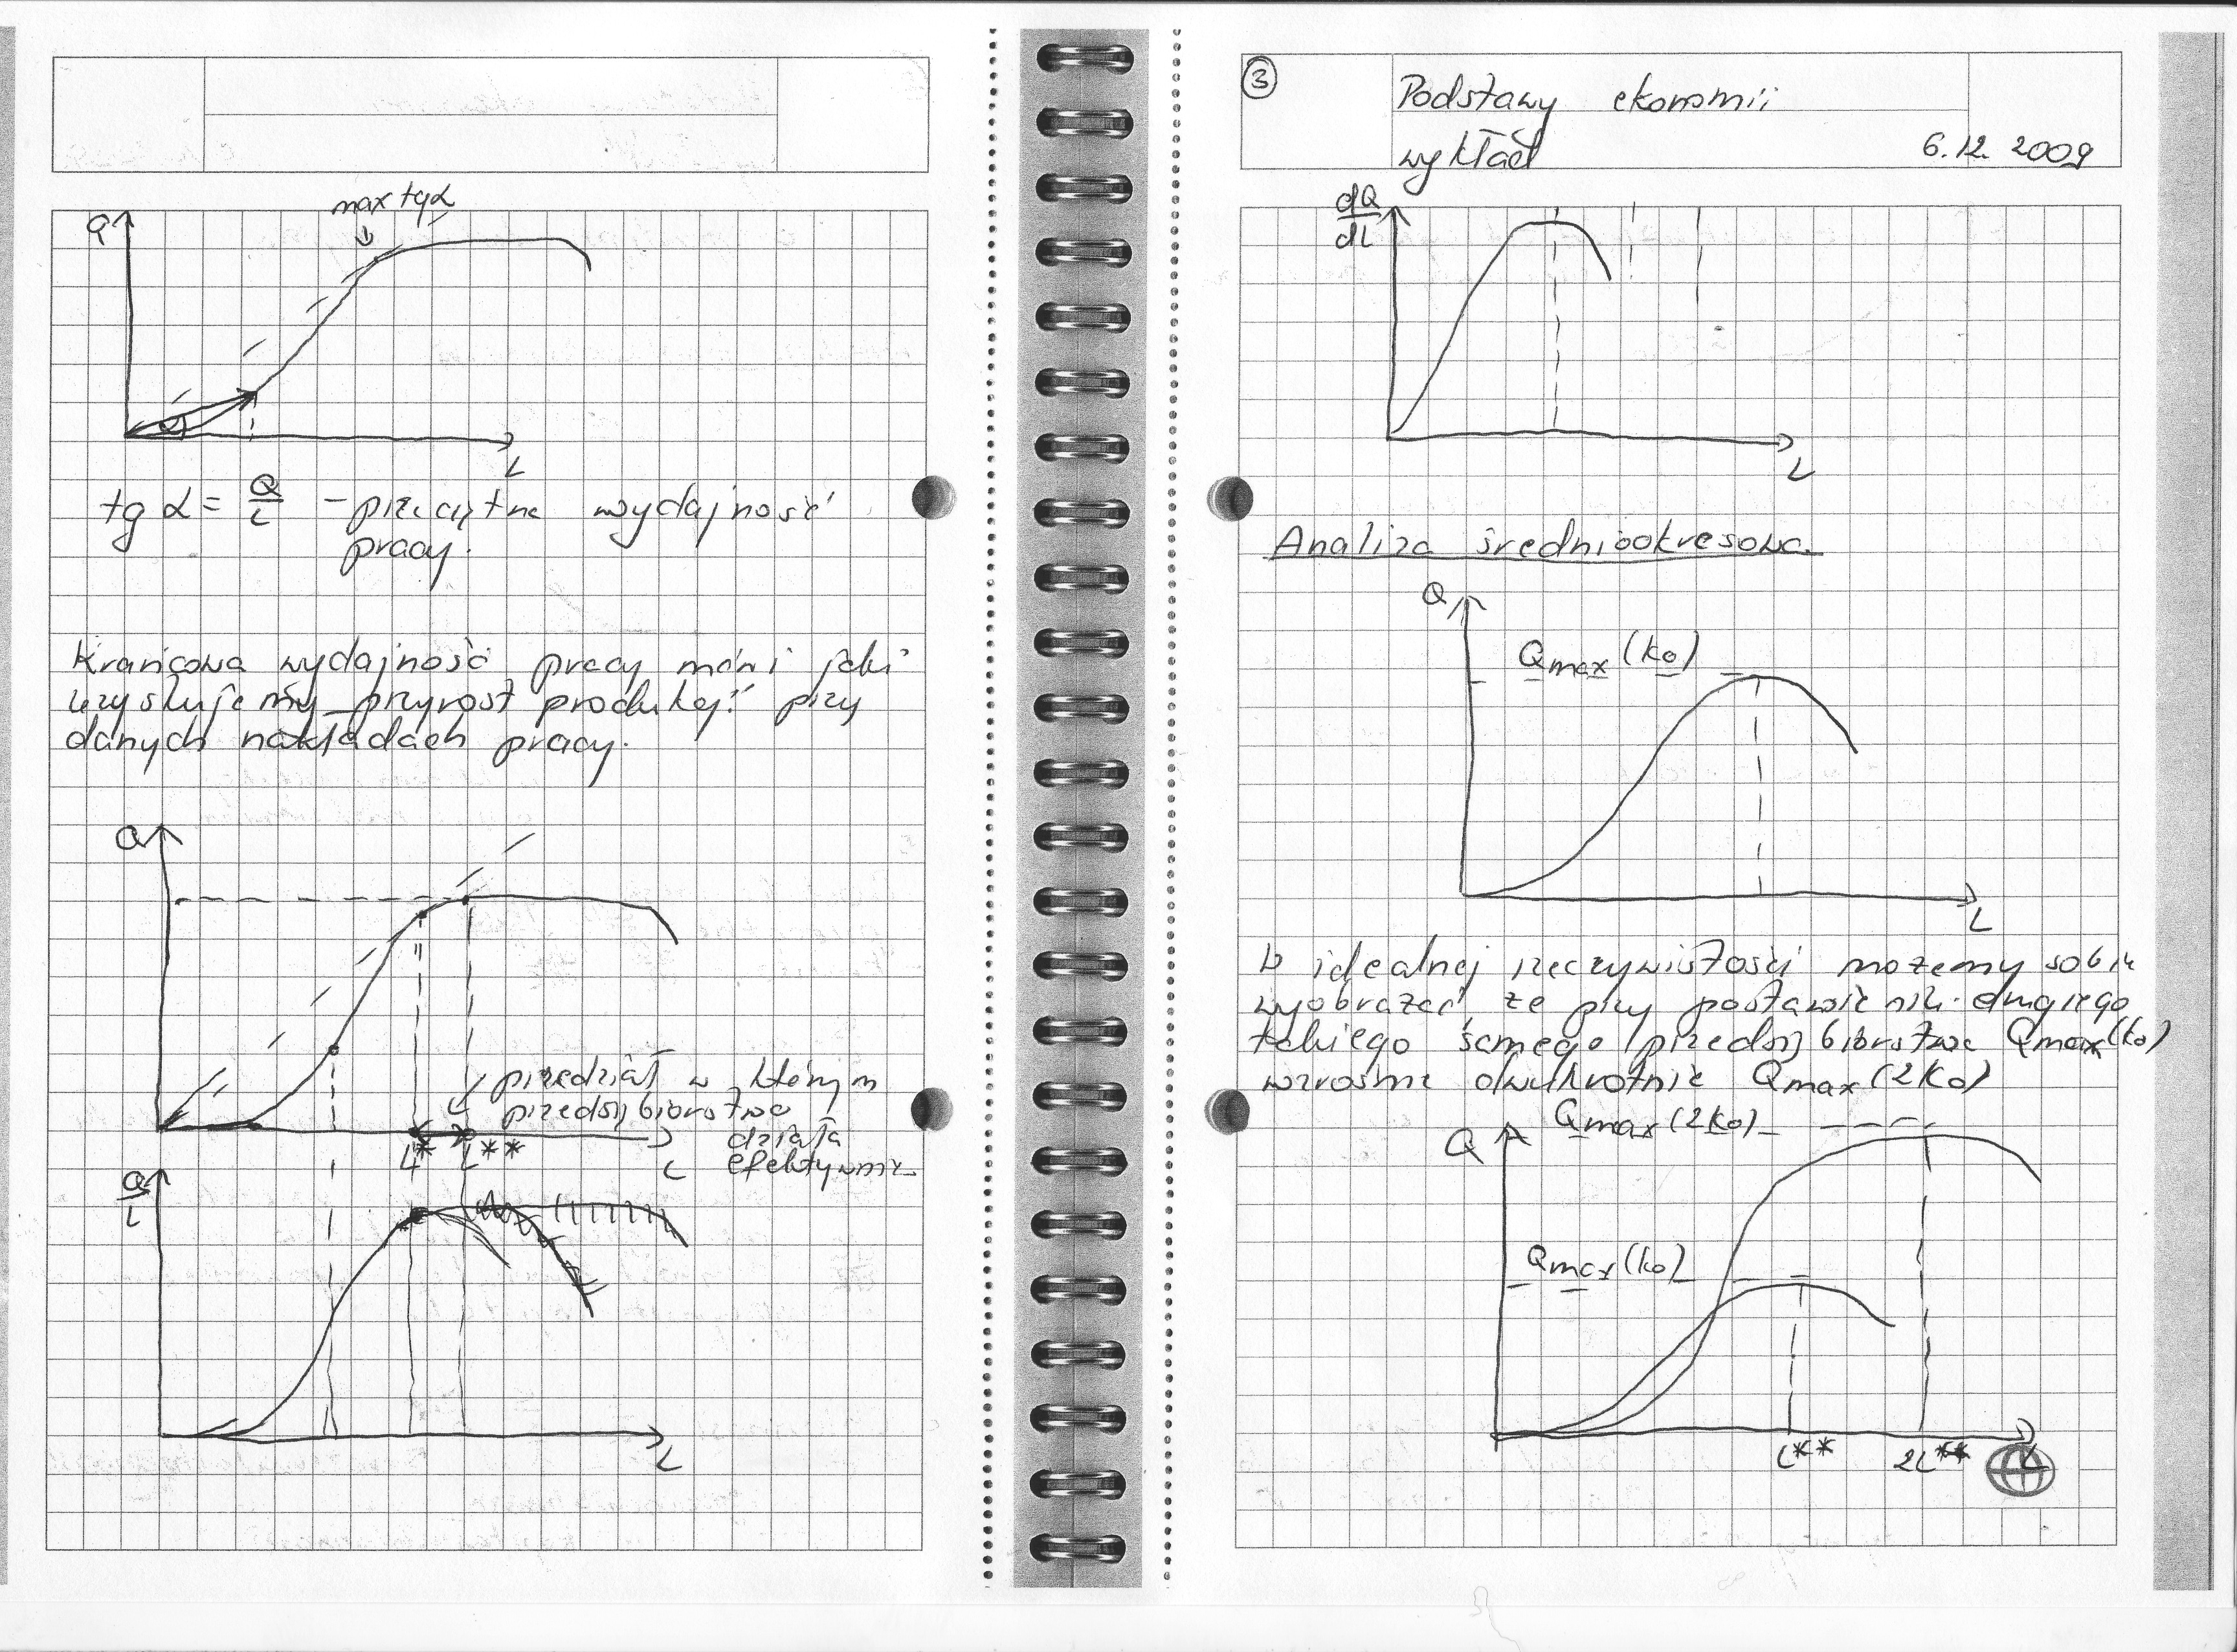 max tgα
Q
L
tg α = Q/L – przeciętna wydajność
pracy.
Krańcowa wydajność pracy mówi jaki
uzyskujemy przyrost produkcji przy
danych nakładach pracy.
Q
przedział w którym
przedsiębiorstwo
działa
efektywnie
L* L** L
Q/L
L
3
Podstawy ekonomii
wykład
6.12. 2009
dQ/dL
L
Analiza średniookresowa.
Q
Qmax (k0)
L
W idealnej rzeczywistości możemy sobie
wyobrazać, że przy postawieniu drugiego
takiego samego przedsiębiorstwa Qmax(k0)
wzrośnie dwukrotnie Qmax (2K0)
Q Qmax (2k0)
Qmax (k0)
L** 2L** L